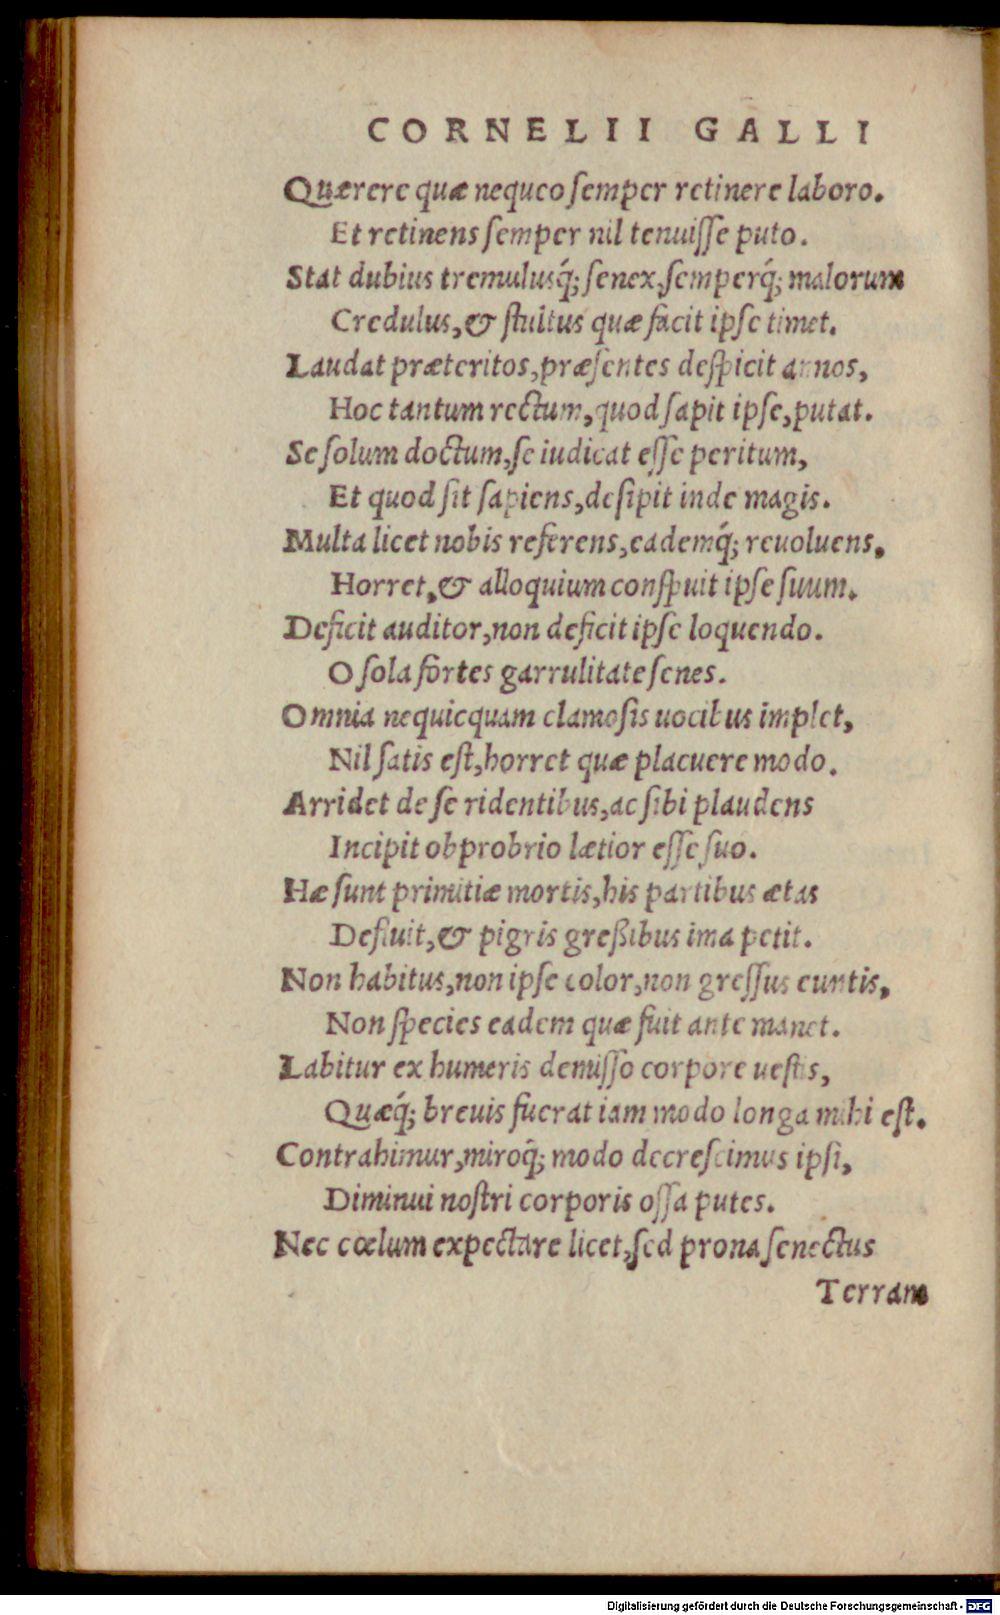 CORNELII GALLI
Quærere quæ nequeo ſemper retinere laboro.
Et retinens ſemper nil tenuiſſe puto.
Stat dubius tremulusq́; ſenex, ſemperq́; malorum
Credulus, & ſtultus quæ facit ipſe timet.
Laudat præteritos, præſentes deſpicit annos,
Hoc tantum rectum, quod ſapit ipſe, putat.
Se ſolum doctum, ſe iudicat eſſe peritum,
Et quod ſit ſapiens, deſipit inde magis.
Multa licet nobis referens, eademq́; reuoluens,
Horret, & alloquium conſpuit ipſe ſuum.
Deficit auditor, non deficit ipſe loquendo.
O ſola fortes garrulitate ſenes.
Omnia nequicquam clamoſis uocibus implet,
Nil ſatis eſt, horret quæ placuere modo.
Arridet de ſe ridentibus, ac ſibi plaudens
Incipit obprobrio lætior eſſe ſuo.
Hæ ſunt primitiæ mortis, his partibus ætas
Defluit, & pigris greßibus ima petit.
Non habitus, non ipſe color, non greſſus euntis,
Non ſpecies eadem quæ fuit ante manet.
Labitur ex humeris demiſſo corpore ueſtis,
Quæq́; breuis fuerat iam modo longa mihi eſt.
Contrahimur, miroq́; modo decreſcimus ipſi,
Diminui noſtri corporis oſſa putes.
Nec cœlum expectare licet, ſed prona ſenectus
Terram
Digitalisierung gefördert durch die Deutsche Forschungsgemeinschaft - DFG